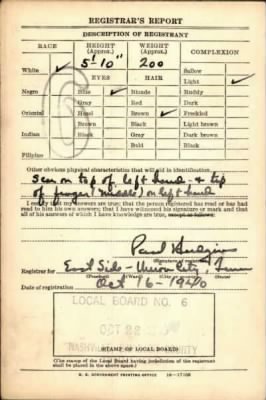 REGISTRAR'S REPORT
DESCRIPTION OF REGISTRANT
RACE HEIGHT (Approx.) WEIGHT (Approx.) COMPLEXION
5' 10" 200
White ✓ Sallow
EYES HAIR Light ✓
Negro Blue ✓ Blonde Ruddy
Gray Red Dark
Oriental Hazel Brown ✓ Freckled
Brown Black Light brown
Indian Black Gray Dark brown
Bald Black
Filipino
Other obvious physical characteristics that will aid in identification
Scar on top of left hand - & top
of finger (middle) on left hand
I certify that my answers are true; that the person registered has read or has had
read to him his own answers; that I have witnessed his signature or mark and that
all of his answers of which I have knowledge are true, except as follows:
Paul
Registrar for East Side Union City, Tenn
(Precinct) (Ward) (City or county) (State)
Date of registration Oct 16 - 1940
LOCAL BOARD NO. 6
OCT 22
(STAMP OF LOCAL BOARD)
(The stamp of the Local Board having jurisdiction of the registrant
shall be placed in the above space.)
U. S. GOVERNMENT PRINTING OFFICE 16-17105